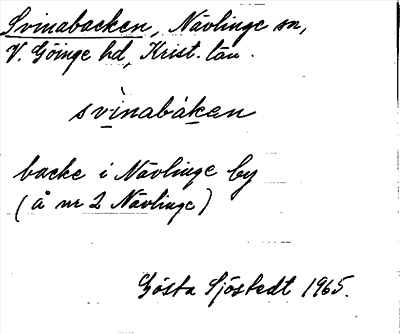 Svinabacken, Nävlinge sn,
V. Göinge hd, Krist. län.
svinabåken
backe i Nävlinge by
(å nr 2 Nävlinge)
Gösta Sjöstedt 1965.